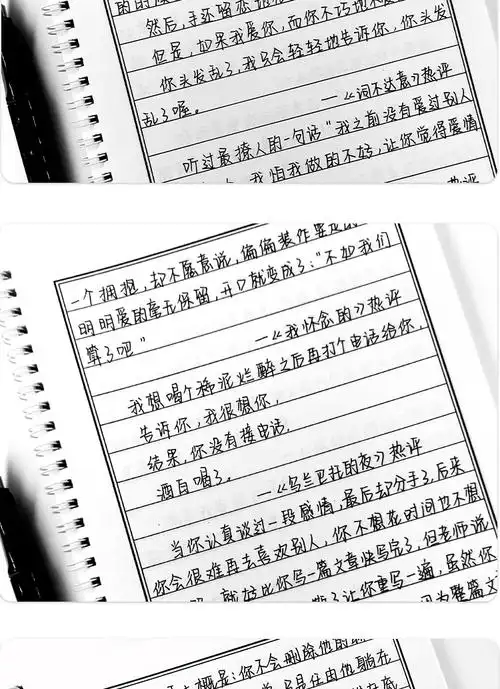 然后，手还留恋地
但是，如果我爱你，而你不巧地不爱
你头发乱了，我只会轻轻地告诉你，你头发
乱了喔。 —《词不达意》热评
听过最撩人的一句话"我之前没有爱过别人
我怕我做的不好，让你觉得爱情
热评
一个拥抱，却不愿意说，偏偏装作
明明爱的毫无保留，开口就变成了："不如我们
算了吧" —《我怀念的》热评
我想喝个稀泥烂醉之后再打个电话给你，
告诉你，我很想你。
结果，你没有接电话，
酒白喝了。 —《乌兰巴托的夜》热评
当你认真谈过一段感情，最后却分手了，后来
你会很难再去喜欢别人，你不想花时间也不想
就好比你写一篇文章快写完了，但老师说
了让你重写一遍，虽然你
因为整篇文
大概是：你不会删除他的
只是任由他躺在